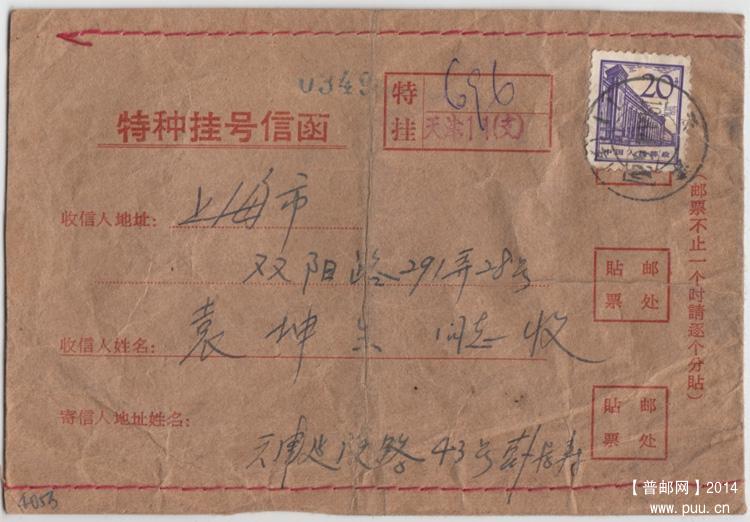 0349
特种挂号信函
特挂
696
天津11(支)
20
中国人民邮政
收信人地址:
上海市
双阳路291弄28号
收信人姓名:
袁坤 同志收
寄信人地址姓名:
天津 路43号韩
貼邮票处
貼邮票处
(邮票不止一个时請逐个分貼)
【普邮网】2014
www.puu.cn